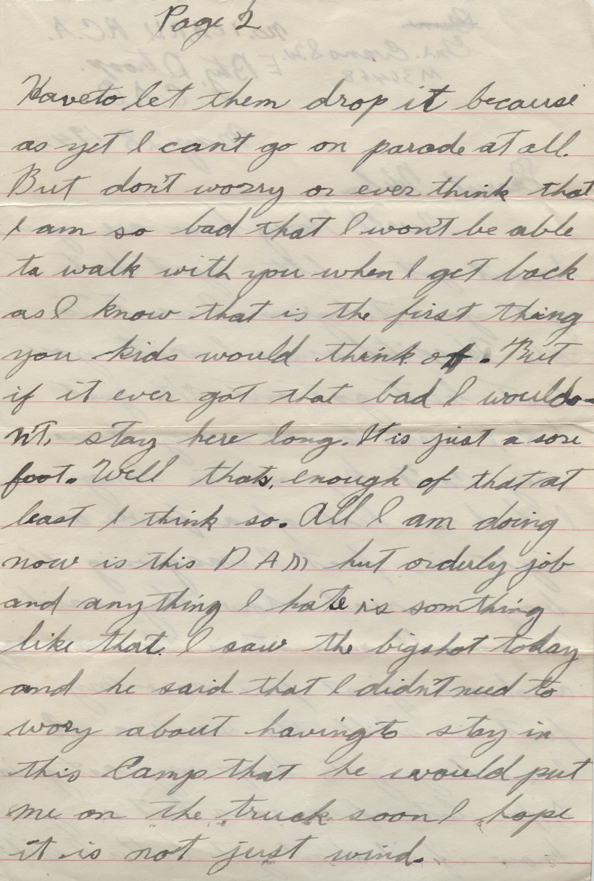 Page 2
Haveto let them drop it because
as yet I can't go on parade at all.
But don't worry or ever think that
I am so bad that I won't be able
to walk with you when I get back
as I know that is the first thing
you kids would think of. But
if it ever got that bad I would-
n't, stay here long. It is just a sore
foot. Well thats, enough of that at
least I think so. All I am doing
now is this D A M hut orderly job
and anything I hate is somthing
like that. I saw the bigshot today
and he said that I didn't need to
wory about havingto stay in
this Camp that he would put
me on the truck soon I hope
it is not just wind.